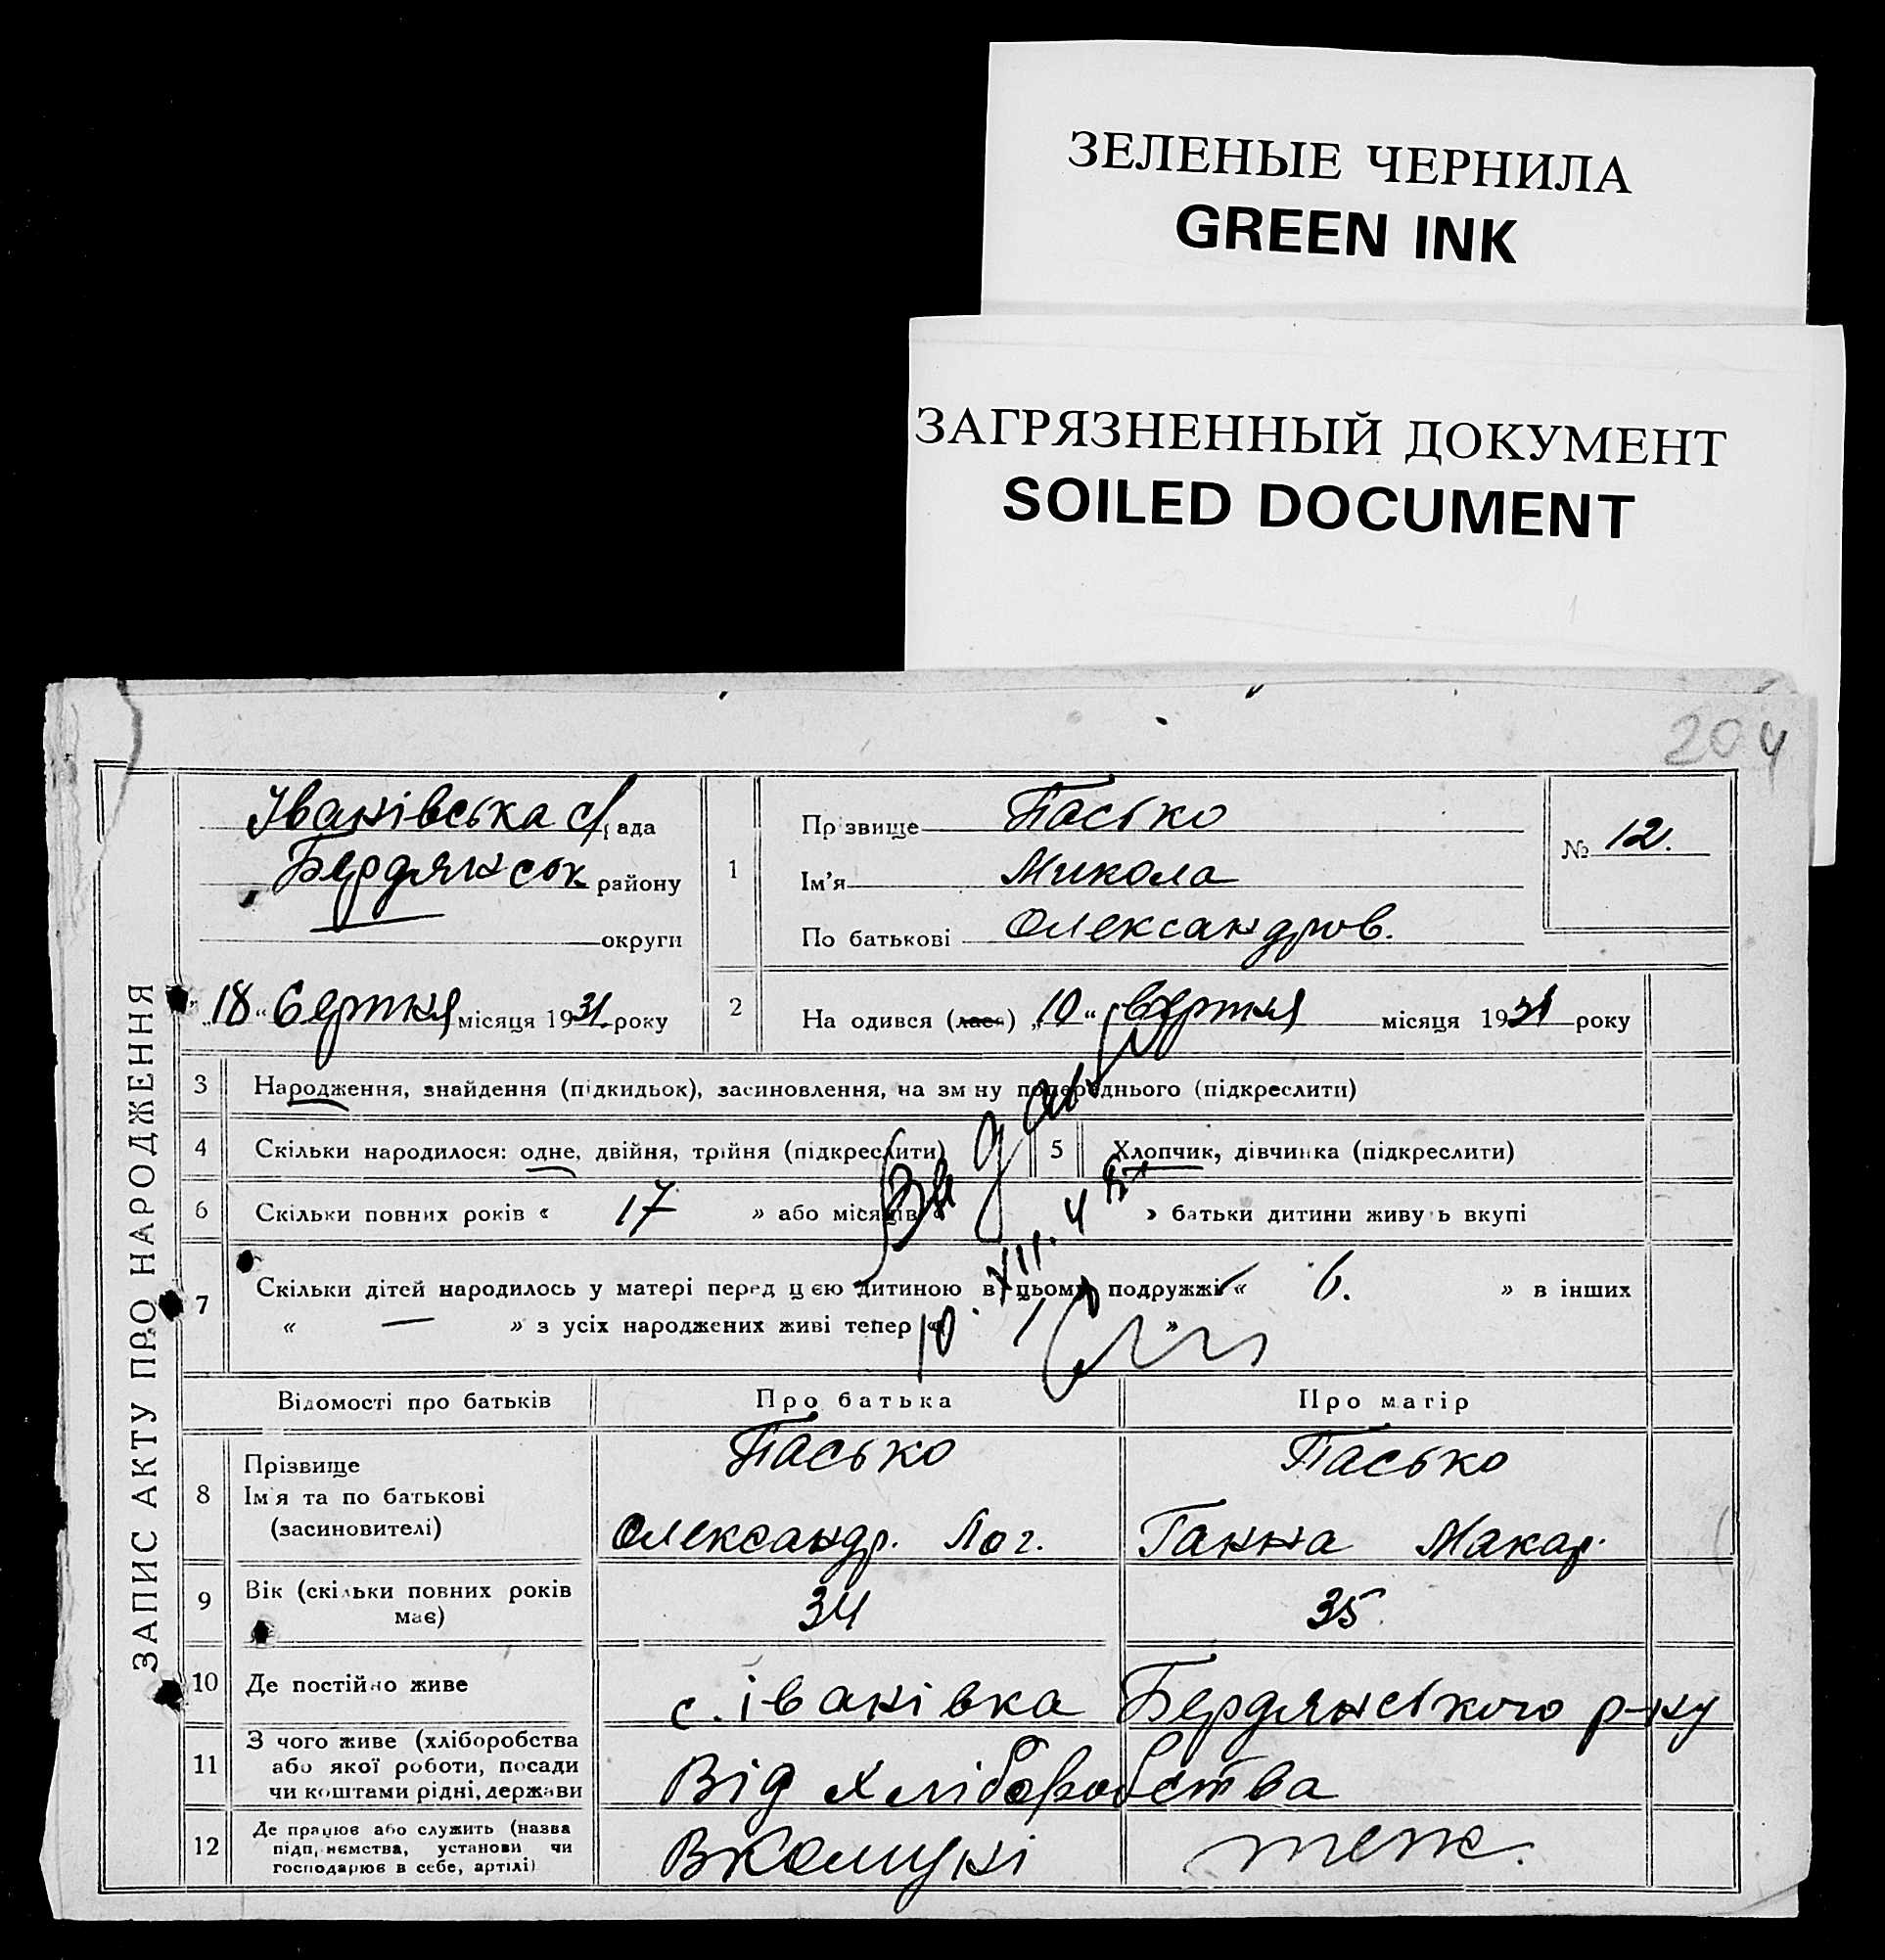 ЗЕЛЕНЫЕ ЧЕРНИЛА
GREEN INK
ЗАГРЯЗНЕННЫЙ ДОКУМЕНТ
SOILED DOCUMENT
204
ЗАПИС АКТУ ПРО НАРОДЖЕННЯ
Іванівська с/рада
Бердянськ району
округи
„18“ Серпня місяця 1931 року
1
Прізвище Пасько
Ім'я Микола
По батькові Олександров.
№ 12.
2 На одився (лася) „10“ серпня місяця 1931 року
3 Народження, знайдення (підкидьок), засиновлення, на зм ну попереднього (підкреслити)
4 Скільки народилося: одне, двійня, трійня (підкреслити)
5 Хлопчик, дівчинка (підкреслити)
6 Скільки повних років « 17 » або місяців « » батьки дитини живу ь вкупі
7 Скільки дітей народилось у матері перед цєю дитиною в цьому подружжі « 6. » в інших
« — » з усіх народжених живі тепер « »
Відомості про батьків Про батька Про матір
8 Прізвище Пасько Пасько
Ім'я та по батькові
(засиновителі) Олександр. Лог. Ганна Макар.
9 Вік (скільки повних років
має) 34 35
10 Де постійно живе с. Іванівка Бердянського р-ну
11 З чого живе (хліборобства
або якої роботи, посади
чи коштами рідні, держави Від хліборобства
12 Де працює або служить (назва
підп, ємства, установи чи
господарює в себе, артілі) В комуні теж.